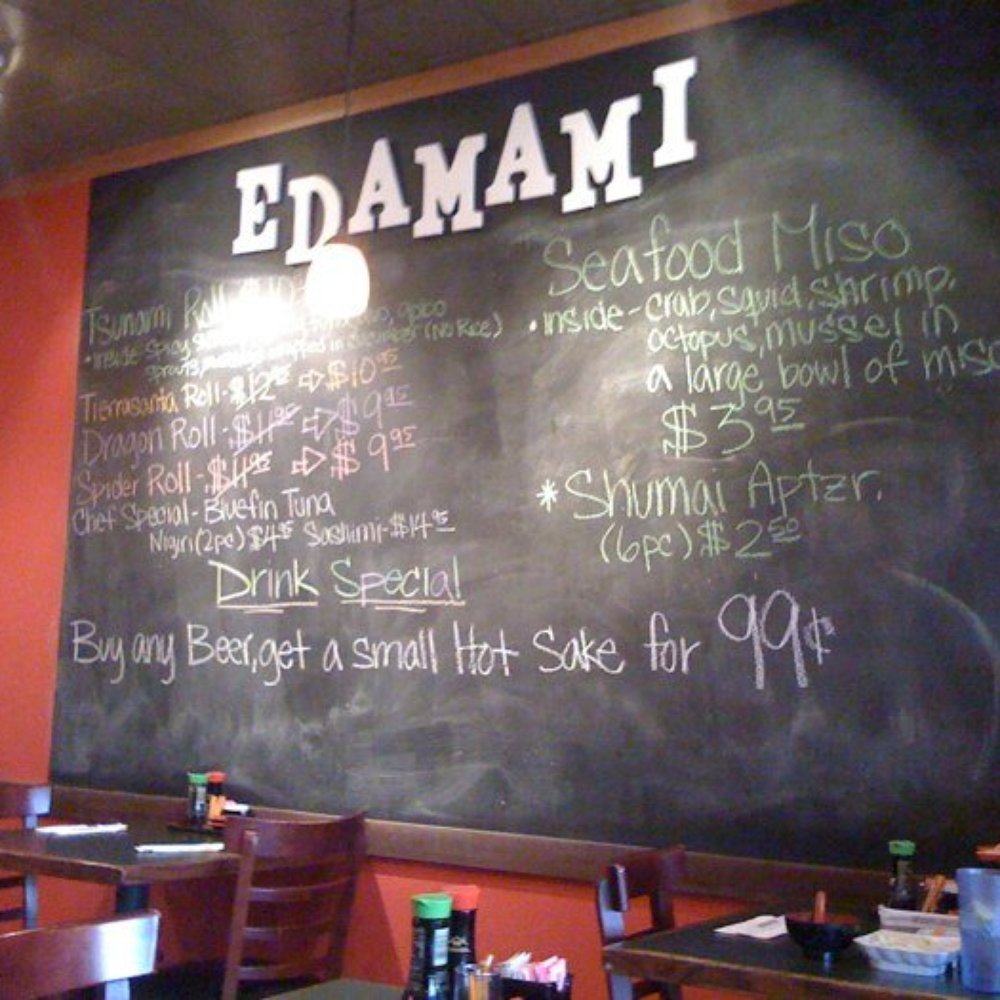 EDAMAMI
Tsunami Roll
• inside spicy
sprouts, in cucumber (No Rice)
Tierrasanta Roll - $12 ⇨ $10.95
Dragon Roll - $11.95 ⇨ $9.95
Spider Roll - $11.95 ⇨ $9.95
Chef Special - Bluefin Tuna
Nigiri (2pc) $4.95 Sashimi - $14.95
Drink Special
Buy any Beer, get a small Hot Sake for 99¢
Seafood Miso
• inside - crab, squid, shrimp,
octopus, mussel in
a large bowl of miso
$3.95
* Shumai Aptzr.
(6pc) $2.50